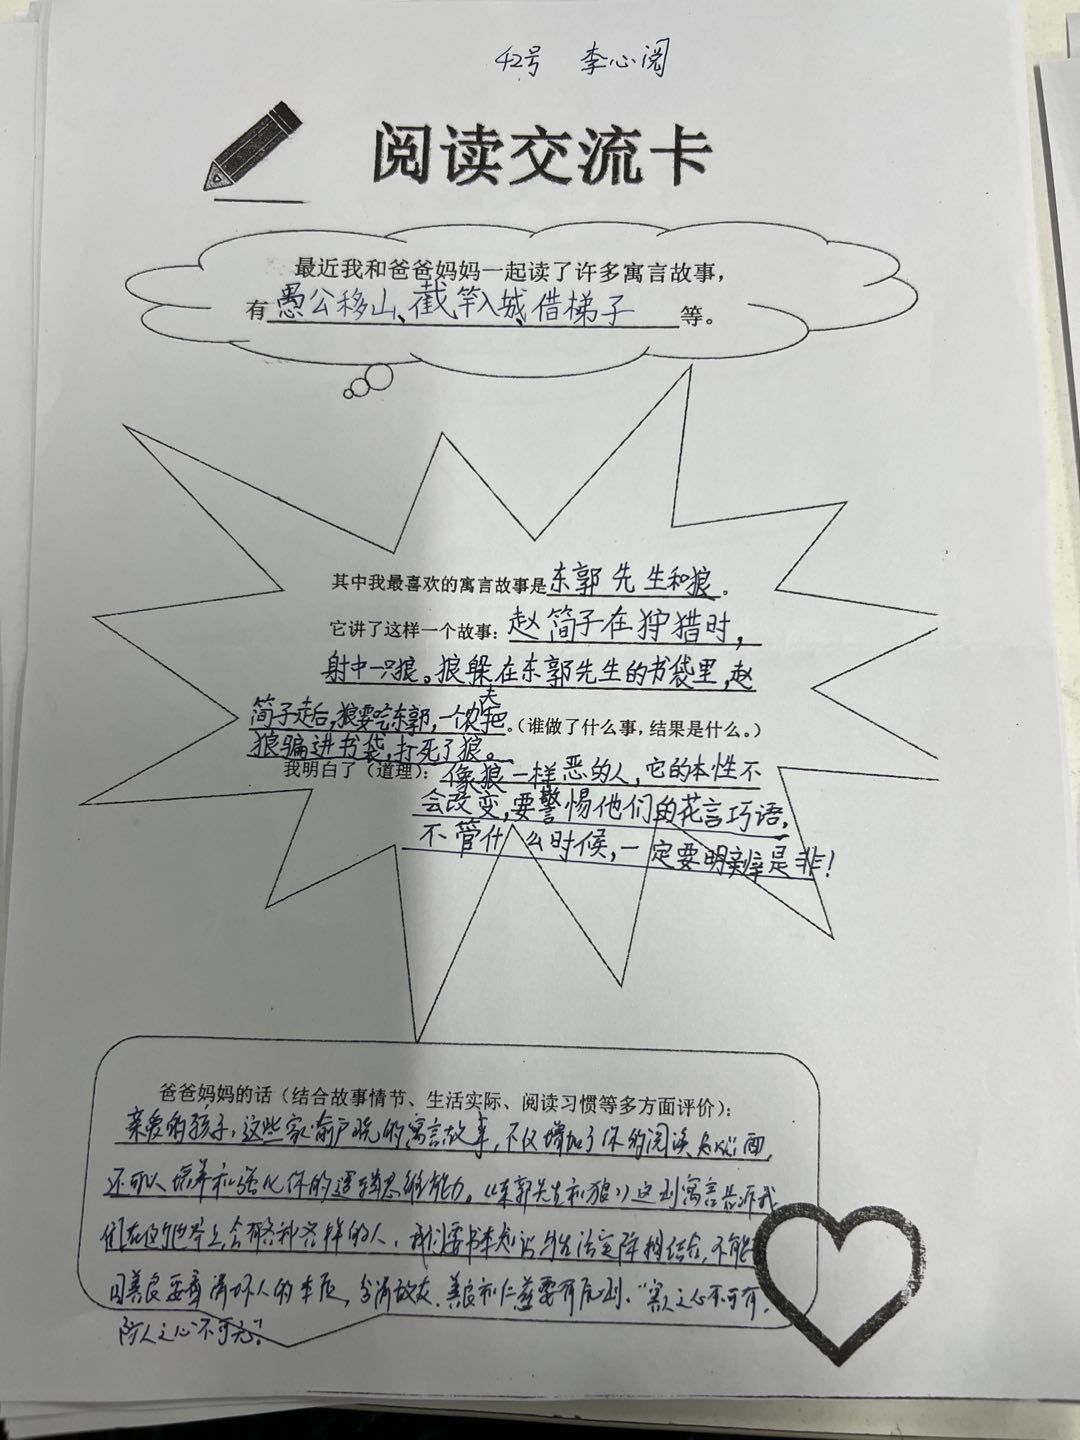 42号 李心阅
阅读交流卡
最近我和爸爸妈妈一起读了许多寓言故事，
有愚公移山、截竿入城、借梯子等。
其中我最喜欢的寓言故事是东郭先生和狼。
它讲了这样一个故事：赵简子在狩猎时，
射中一只狼。狼躲在东郭先生的书袋里，赵
简子走后，狼要吃东郭，一个农夫把。（谁做了什么事，结果是什么。）
狼骗进书袋，打死了狼。
我明白了（道理）：像狼一样恶的人，它的本性不
会改变，要警惕他们的花言巧语，
不管什么时候，一定要明辨是非！
爸爸妈妈的话（结合故事情节、生活实际、阅读习惯等多方面评价）：
亲爱的孩子，这些家喻户晓的寓言故事，不仅增加了你的阅读知识面，
还可以培养和强化你的逻辑思维能力。《东郭先生和狼》这则寓言告诉我
们在这个世界上会有各种各样的人，我们要书本知识与生活实际相结合，不能
因善良要看清坏人的本质，分清敌友，善良和仁慈要有原则，“害人之心不可有，
防人之心不可无”！